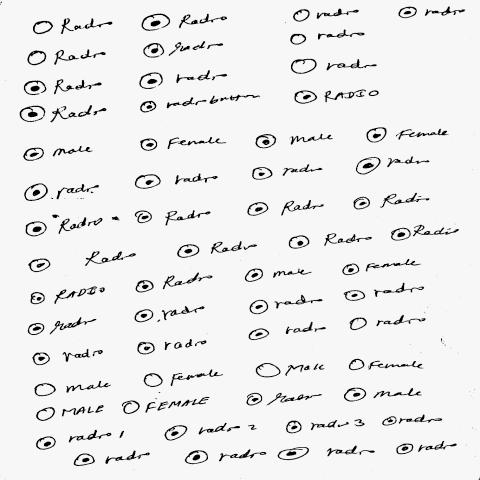 Radio Radio radio radio
Radio Radio radio
Radio radio radio
Radio radio button RADIO
male Female male Female
radio radio radio radio
"Radio" Radio Radio Radio
Radio Radio Radio Radio
RADIO Radio male Female
radio radio radio radio
radio radio radio radio
male Female Male Female
MALE FEMALE male
radio 1 radio 2 radio 3 radio
radio radio radio radio